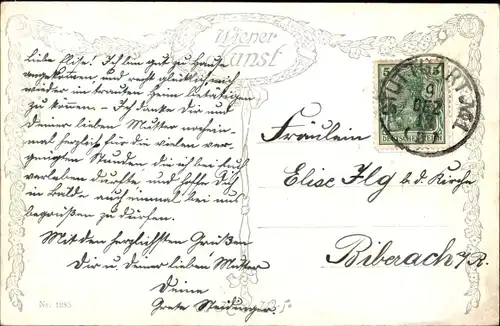 Wiener
Kunst
Liebe Elise! Ich bin gut zu Hause
angekommen, und recht glücklich mich
wieder in trauten Heim betätigen
zu können. – Ich danke Dir und
Deiner lieben Mutter nochein-
mal herzlich für die vielen ver-
gnügten Stunden die ich bei Euch
verleben durfte, und hoffe Dich
in Bälde auch einmal bei uns
begrüßen zu dürfen.
Mit den herzlichsten Grüßen
Dir u. Deiner lieben Mutter
Deine
Grete
Nr. 1285
5
9
DEZ
Fräulein
Elise Ilg b. d. Kirche
Biberach a/R.